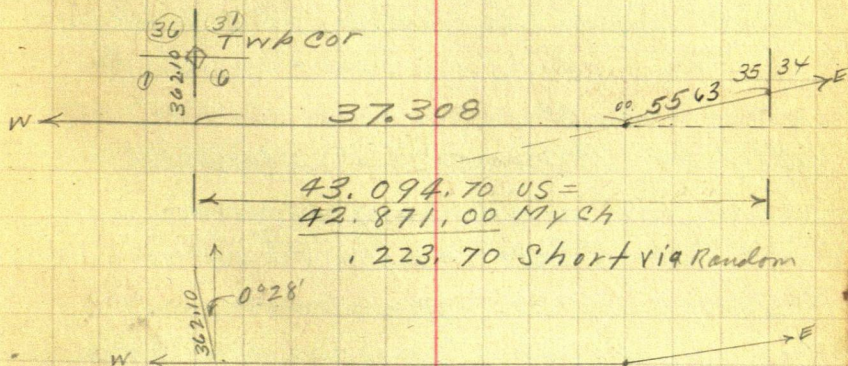 36 31
Twp Cor
1 6
362.10
35 34
00. 5563 E
W 37.308
43.094.70 US =
42.871.00 My Ch
.223.70 Short via Random
0°28'
362.10
W E